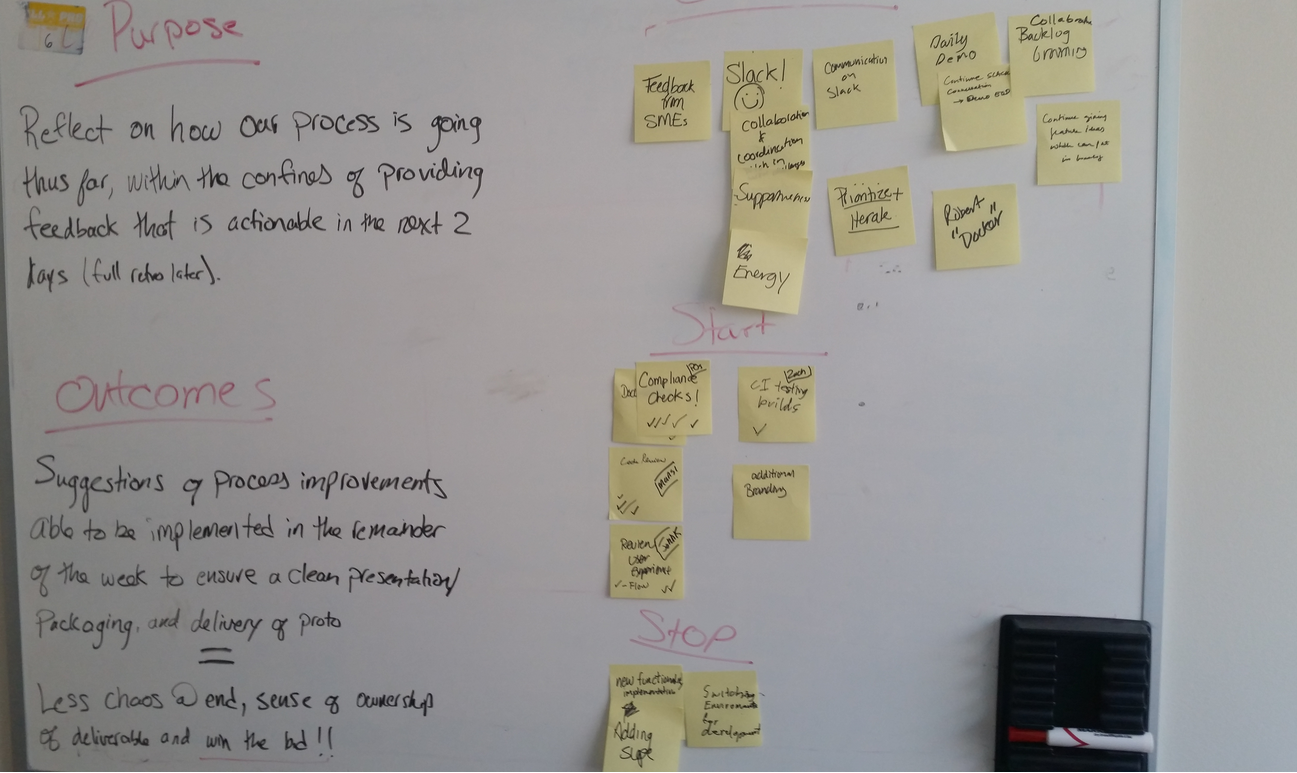 Purpose
Reflect on how our process is going
thus far, within the confines of providing
feedback that is actionable in the next 2
days (full retro later).
Outcomes
Suggestions of process improvements
able to be implemented in the remainder
of the week to ensure a clean presentation/
packaging, and delivery of proto
=
Less chaos @ end, sense of ownership
of deliverable and win the bid!!
Feedback
from
SMEs
Slack!
Collaboration
&
coordination
Supportiveness
Energy
Communication
on
Slack
Prioritize +
Iterate
Daily
Demo
Continue
Conversation
→ Demo EOD
Collaborate
Backlog
Grooming
Continue
feature ideas
while
in
Robert
"Docker"
Start
Compliance
Checks!
CI testing
builds
Zach
Code Review
Mansi
additional
Branding
Review
User
Experience
- Flow
Stop
new functionality
implementation
Adding
Switching
Environments
for
development